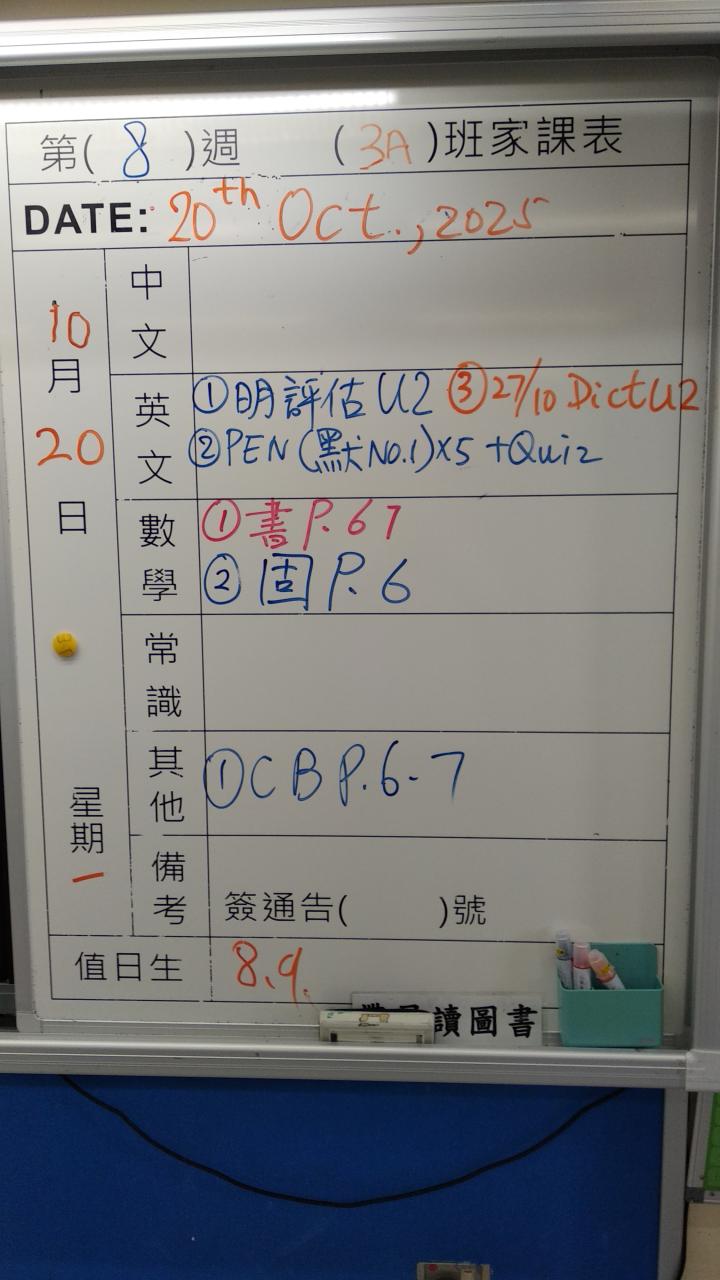 第( 8 )週 ( 3A )班家課表
DATE: 20th Oct., 2025
10月20日
星期一
中文
英文
①明評估 U2 ③27/10 Dict U2
②PEN (默 NO.1)x5 +Quiz
數學
①書 P.67
②固 P.6
常識
其他
①CB P.6-7
備考
簽通告( )號
值日生
8.9.
讀圖書